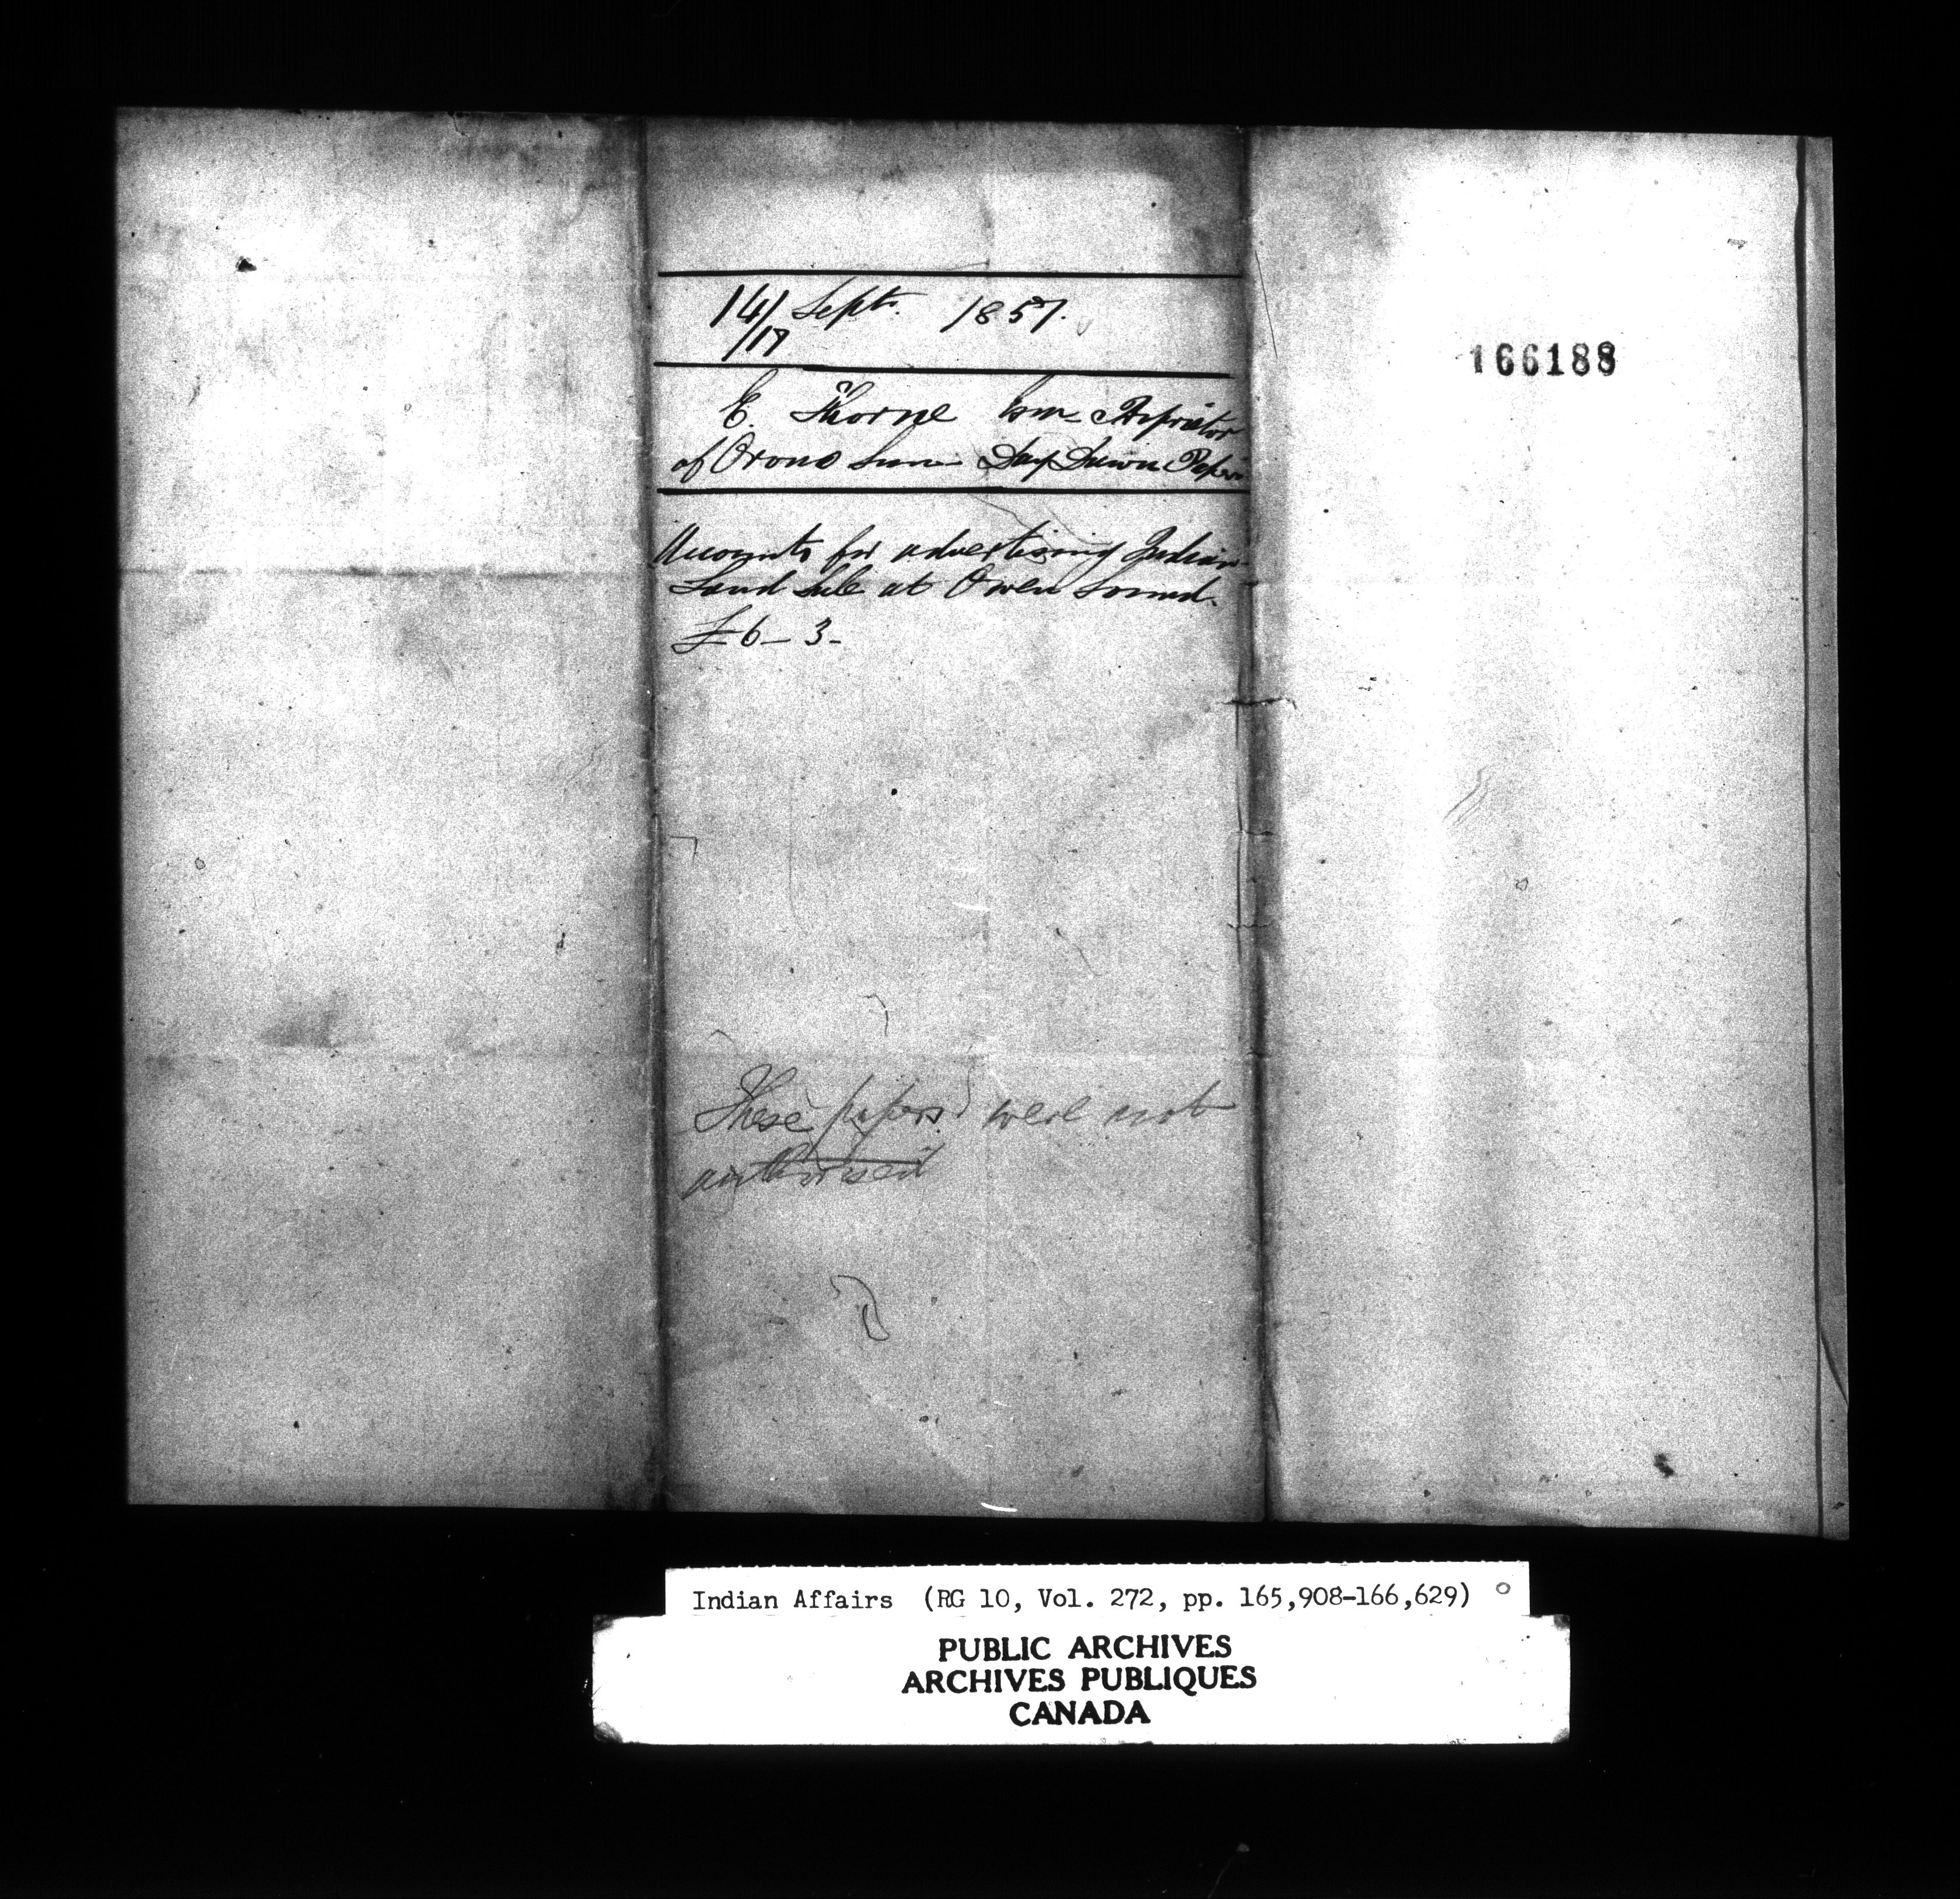 14/ Sept. 1857.
/17
E. Thorne Proprietor
of Orono Sun Day Dawn Papers
Accounts for advertising Indian
Land Sale at Owen Sound.
£6-3-
These papers were not
authorised
166188
Indian Affairs (RG 10, Vol. 272, pp. 165,908-166,629)
PUBLIC ARCHIVES
ARCHIVES PUBLIQUES
CANADA